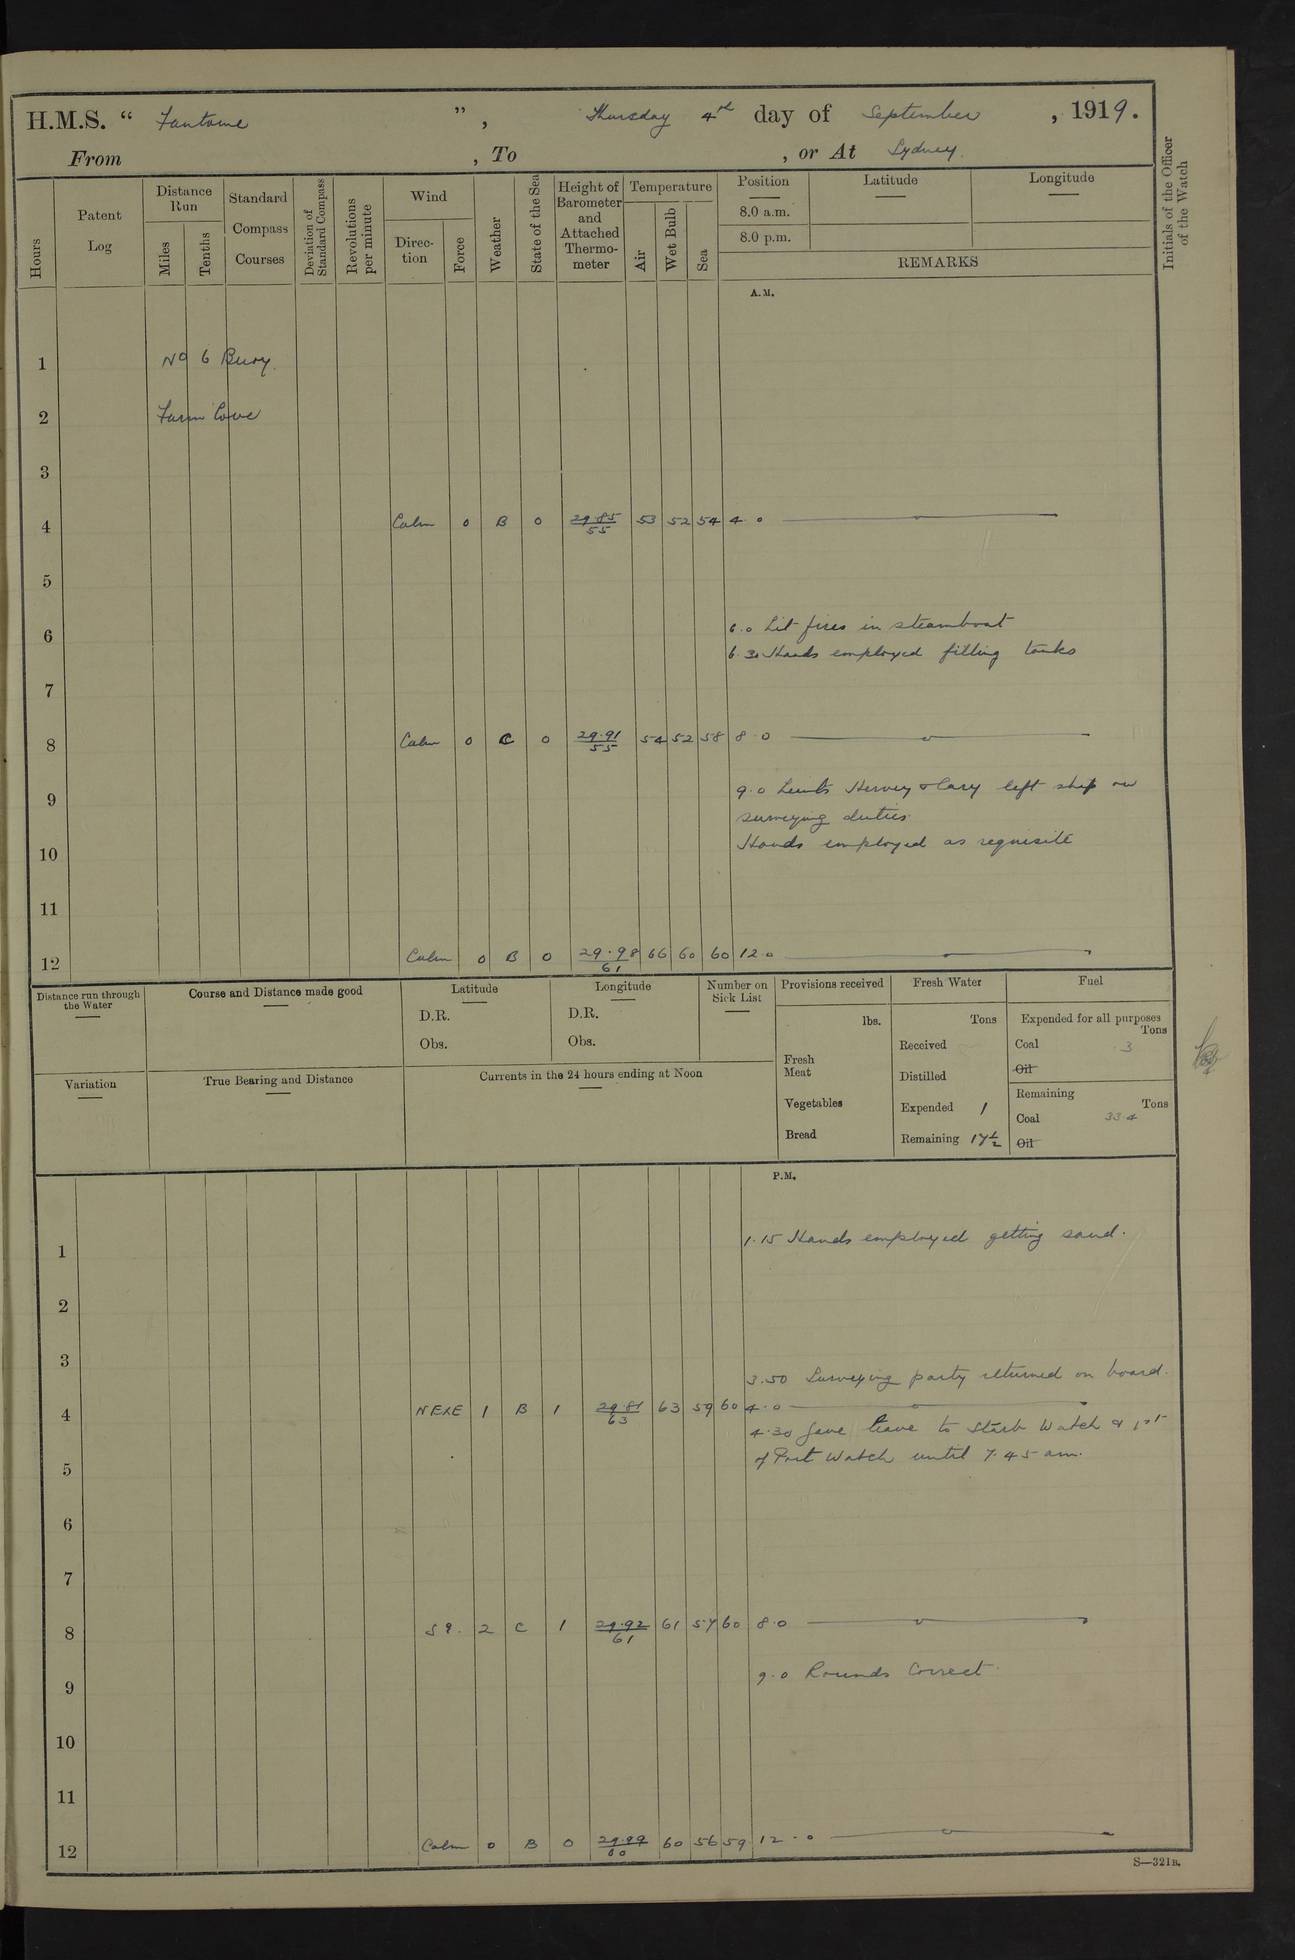 H.M.S. “ Fantome ”, Thursday 4th day of September, 1919.
From , To , or At Sydney.
Hours
Patent Log
Distance Run
Miles
Tenths
Standard Compass Courses
Deviation of Standard Compass
Revolutions per minute
Wind
Direction
Force
Weather
State of the Sea
Height of Barometer and Attached Thermometer
Temperature
Air
Wet Bulb
Sea
Position
Latitude
Longitude
8.0 a.m.
8.0 p.m.
REMARKS
Initials of the Officer of the Watch
A.M.
1 No 6 Buoy.
2 Farm Cove
3
4 Calm 0 B 0 29.85/55 53 52 54 4.0
5
6 6.0 Lit fires in steamboat
6.30 Hands employed filling tanks
7
8 Calm 0 C 0 29.91/55 54 52 58 8.0
9 9.0 Leuts Hervey & Cary left ship on
surveying duties.
10 Hands employed as requisite
11
12 Calm 0 B 0 29.98/61 66 60 60 12.0
Distance run through the Water
Course and Distance made good
Latitude
D.R.
Obs.
Longitude
D.R.
Obs.
Number on Sick List
Provisions received
lbs.
Fresh Meat
Vegetables
Bread
Fresh Water
Tons
Received
Distilled
Expended 1
Remaining 17½
Fuel
Expended for all purposes
Tons
Coal 3
Oil
Remaining
Tons
Coal 33.4
Oil
Variation
True Bearing and Distance
Currents in the 24 hours ending at Noon
P.M.
1 1.15 Hands employed getting sand.
2
3
3.50 Surveying party returned on board.
4 NExE 1 B 1 29.81/63 63 59 60 4.0
4.30 Gave leave to Starb Watch & 1st
5 of Port Watch until 7.45 am.
6
7
8 2 C 1 29.92/61 61 57 60 8.0
9 9.0 Rounds Correct.
10
11
12 Calm 0 B 0 29.99/60 60 56 59 12.0
S—321B.